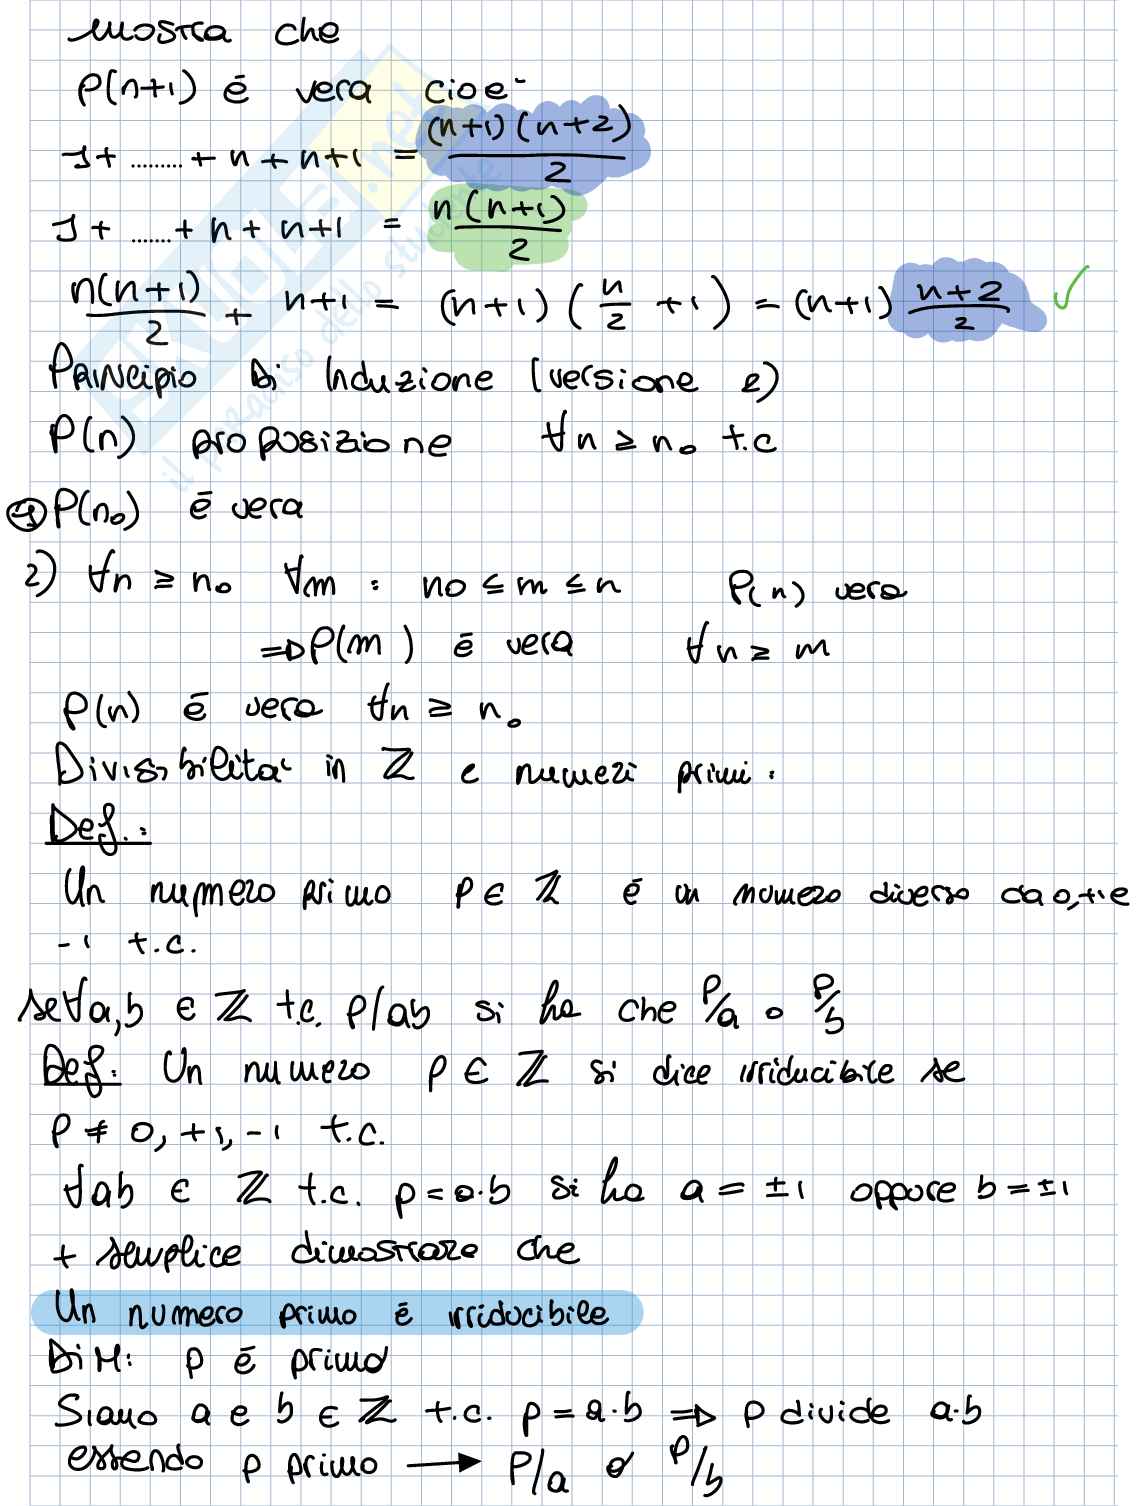 mostra che
P(n+1) é vera cioe'
1+ ......... + n + n+1 = (n+1)(n+2)/2
1+ ....... + n + n+1 = n(n+1)/2
n(n+1)/2 + n+1 = (n+1)(n/2 +1) = (n+1) n+2/2 ✓
Principio Di Induzione (versione 2)
P(n) proposizione ∀n ≥ n₀ t.c
1) P(n₀) é vera
2) ∀n ≥ n₀ ∀m : n0 ≤ m ≤ n P(n) vera
⇒ P(m) é vera ∀n ≥ m
P(n) é vera ∀n ≥ n₀
Divisibilita' in ℤ e numeri primi:
Def.:
Un numero primo p ∈ ℤ é un numero diverso da 0,+1 e
-1 t.c.
se ∀a,b ∈ ℤ t.c. p/ab si ha che p/a o p/b
Def: Un numero p ∈ ℤ si dice irriducibile se
p ≠ 0, +1, -1 t.c.
∀ab ∈ ℤ t.c. p=a·b si ha a = ±1 oppure b = ±1
+ semplice dimostrare che
Un numero primo é irriducibile
DiM: p é primo
Siano a e b ∈ ℤ t.c. p=a·b ⇒ p divide a·b
essendo p primo → p/a o p/b
SKUOLA.net
il paradiso dello studente